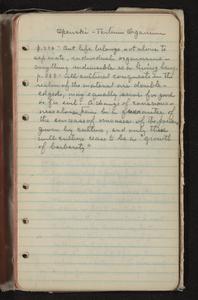 Ouspenski - Tertium Organum
p. 224 "But life belongs not alone to
separate, individual organisms -
anything indivisible is a living being.
All cultural conquests in the
realm of the material are double-
edged, may equally serve for good
or for evil. A change of conscious-
ness alone can be a guarantee of
the surcease of misuse of the powers
given by culture, and only thus
will culture cease to be a "growth
of barbarity."